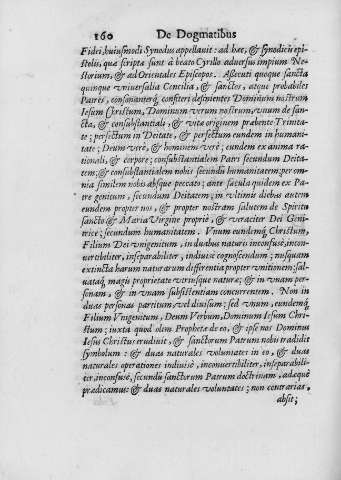 160 De Dogmatibus
Fidei, huiusmodi Synodus appellauit: ad hæc, & synodicis epi-
stolis, quæ scripta sunt à beato Cyrillo aduersus impium Ne-
storium, & ad Orientales Episcopos. Assecuti quoque sancta
quinque vniuersalia Concilia, & sanctos, atque probabiles
Patres, consonanterq; confiteri definientes Dominum nostrum
Iesum Christum, Dominum verum nostrum, vnum de san-
cta, & consubstantiali, & vitæ originem præbente Trinita-
te; perfectum in Deitate, & perfectum eundem in humani-
tate; Deum verè, & hominem verè; eundem ex anima ra-
tionali, & corpore; consubstantialem Patri secundum Deita-
tem; & consubstantialem nobis secundũ humanitatem; per om-
nia similem nobis absque peccato; ante sæcula quidem ex Pa-
tre genitum, secundum Deitatem; in vltimis diebus autem
eundem propter nos, & propter nostram salutem de Spiritu
sancto & Maria Virgine propriè, & veraciter Dei Geni-
trice; secundum humanitatem. Vnum eundemq; Christum,
Filium Dei vnigenitum, in duabus naturis inconfusè, incon-
uertibiliter, inseparabiliter, indiuisè cognoscendum; nusquam
extincta harum naturarum differentia propter vnitionem; sal-
uataq; magis proprietate vtriusque naturæ; & in vnam per-
sonam, & in vnam subsistentiam concurrentem. Non in
duas personas partitum, vel diuisum; sed vnum, eundemq;
Filium Vnigenitum, Deum Verbum, Dominum Iesum Chri-
stum; iuxta quod olem Prophetæ de eo, & ipse nos Dominus
Iesus Christus erudiuit, & sanctorum Patrum nobis tradidit
symbolum: & duas naturales voluntates in eo, & duas
naturales operationes indiuisè, inconuertibiliter, inseparabili-
ter, inconfusè, secundũ sanctorum Patrum doctrinam, adæquè
prædicamus; & duas naturales voluntates; non contrarias,
absit;